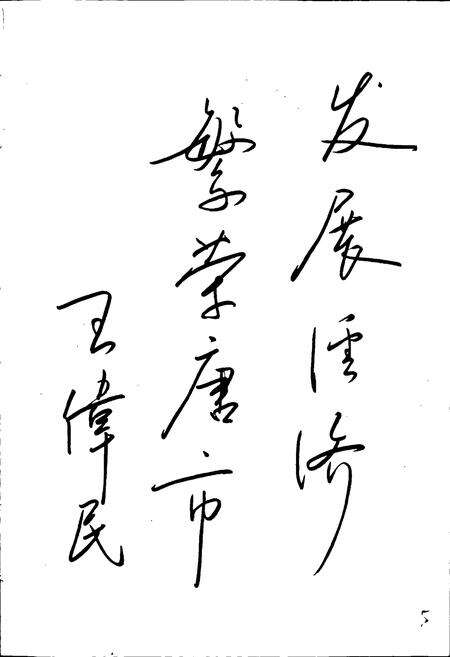 发展经济
繁荣唐市
王偉民
5